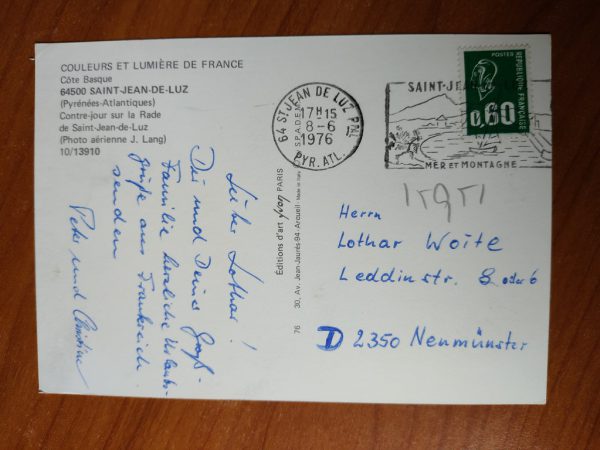 COULEURS ET LUMIÈRE DE FRANCE
Côte Basque
64500 SAINT-JEAN-DE-LUZ
(Pyrénées-Atlantiques)
Contre-jour sur la Rade
de Saint-Jean-de-Luz
(Photo aérienne J. Lang)
10/13910
Lieber Lothar!
Dir und Deiner Groß-
Familie herzliche Urlaubs-
grüße aus Frankreich
senden
Peter und Christine
Éditions d'art PARIS
76 30, Av. Jean Jaurès-94-Arcueil - Made in Italy
64 ST JEAN DE LUZ PPAL
S.P.A.DEM
17H15
8-6
1976
PYR. ATL.
SAINT-JEAN
MER ET MONTAGNE
POSTES
0,60
REPUBLIQUE FRANÇAISE
Herrn
Lothar Woite
Leddinstr. 8 oder 6
D 2350 Neumünster